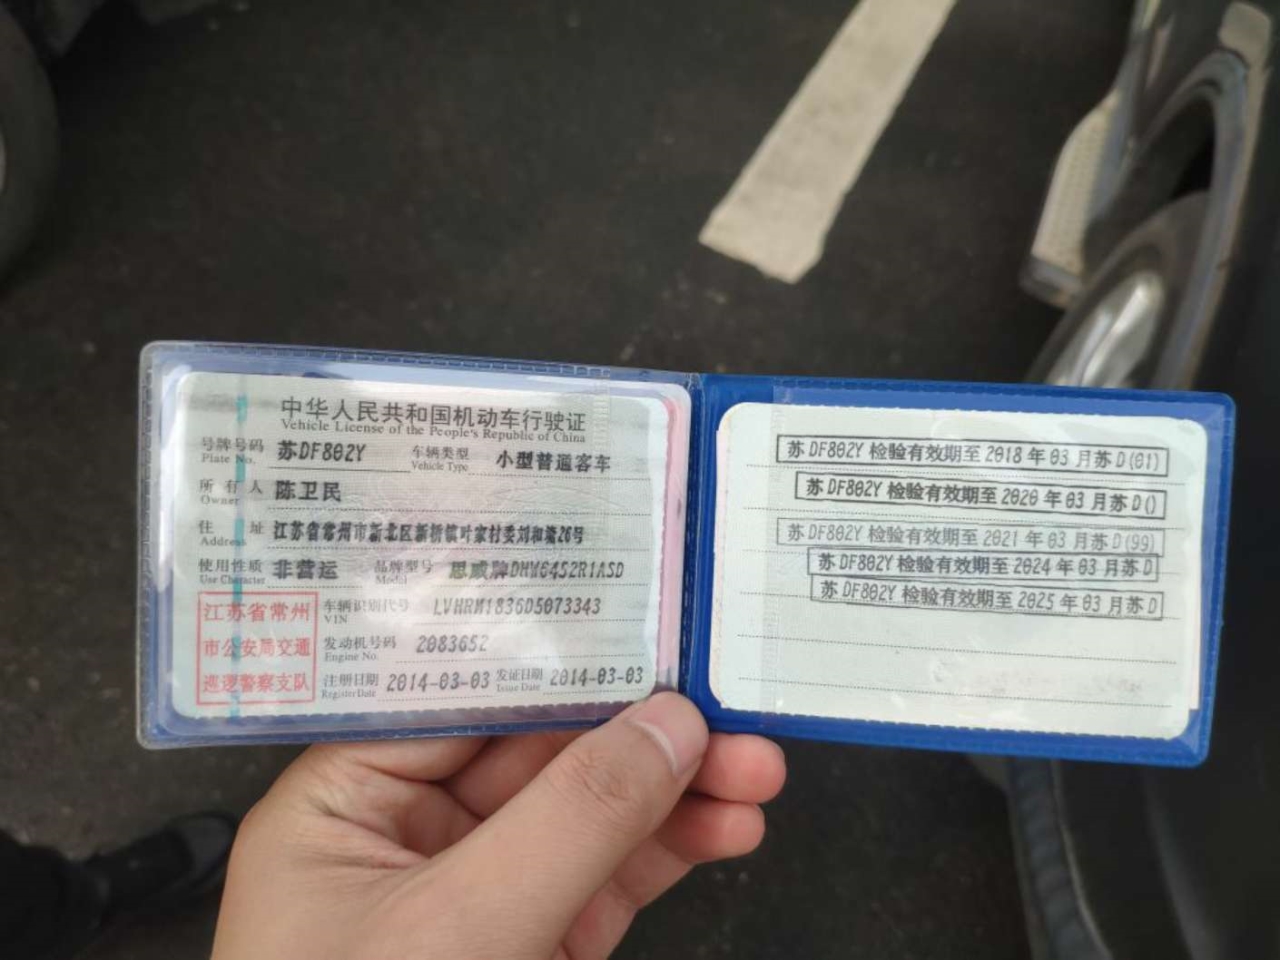 中华人民共和国机动车行驶证
Vehicle License of the People's Republic of China
号牌号码 苏DF802Y 车辆类型 小型普通客车
Plate No. Vehicle Type
所有人 陈卫民
Owner
住址 江苏省常州市新北区新桥镇叶家村委刘和塘26号
Address
使用性质 非营运 品牌型号 思威牌DHW6452R1ASD
Use Character Model
江苏省常州
市公安局交通
巡逻警察支队
车辆识别代号 LVHRM1836D5073343
VIN
发动机号码 2083652
Engine No.
注册日期 2014-03-03 发证日期 2014-03-03
Register Date Issue Date
苏DF802Y 检验有效期至 2018 年 03 月苏D(01)
苏DF802Y 检验有效期至 2020 年 03 月苏D()
苏DF802Y 检验有效期至 2021 年 03 月苏D(99)
苏DF802Y 检验有效期至 2024 年 03 月苏D
苏DF802Y 检验有效期至 2025 年 03 月苏D